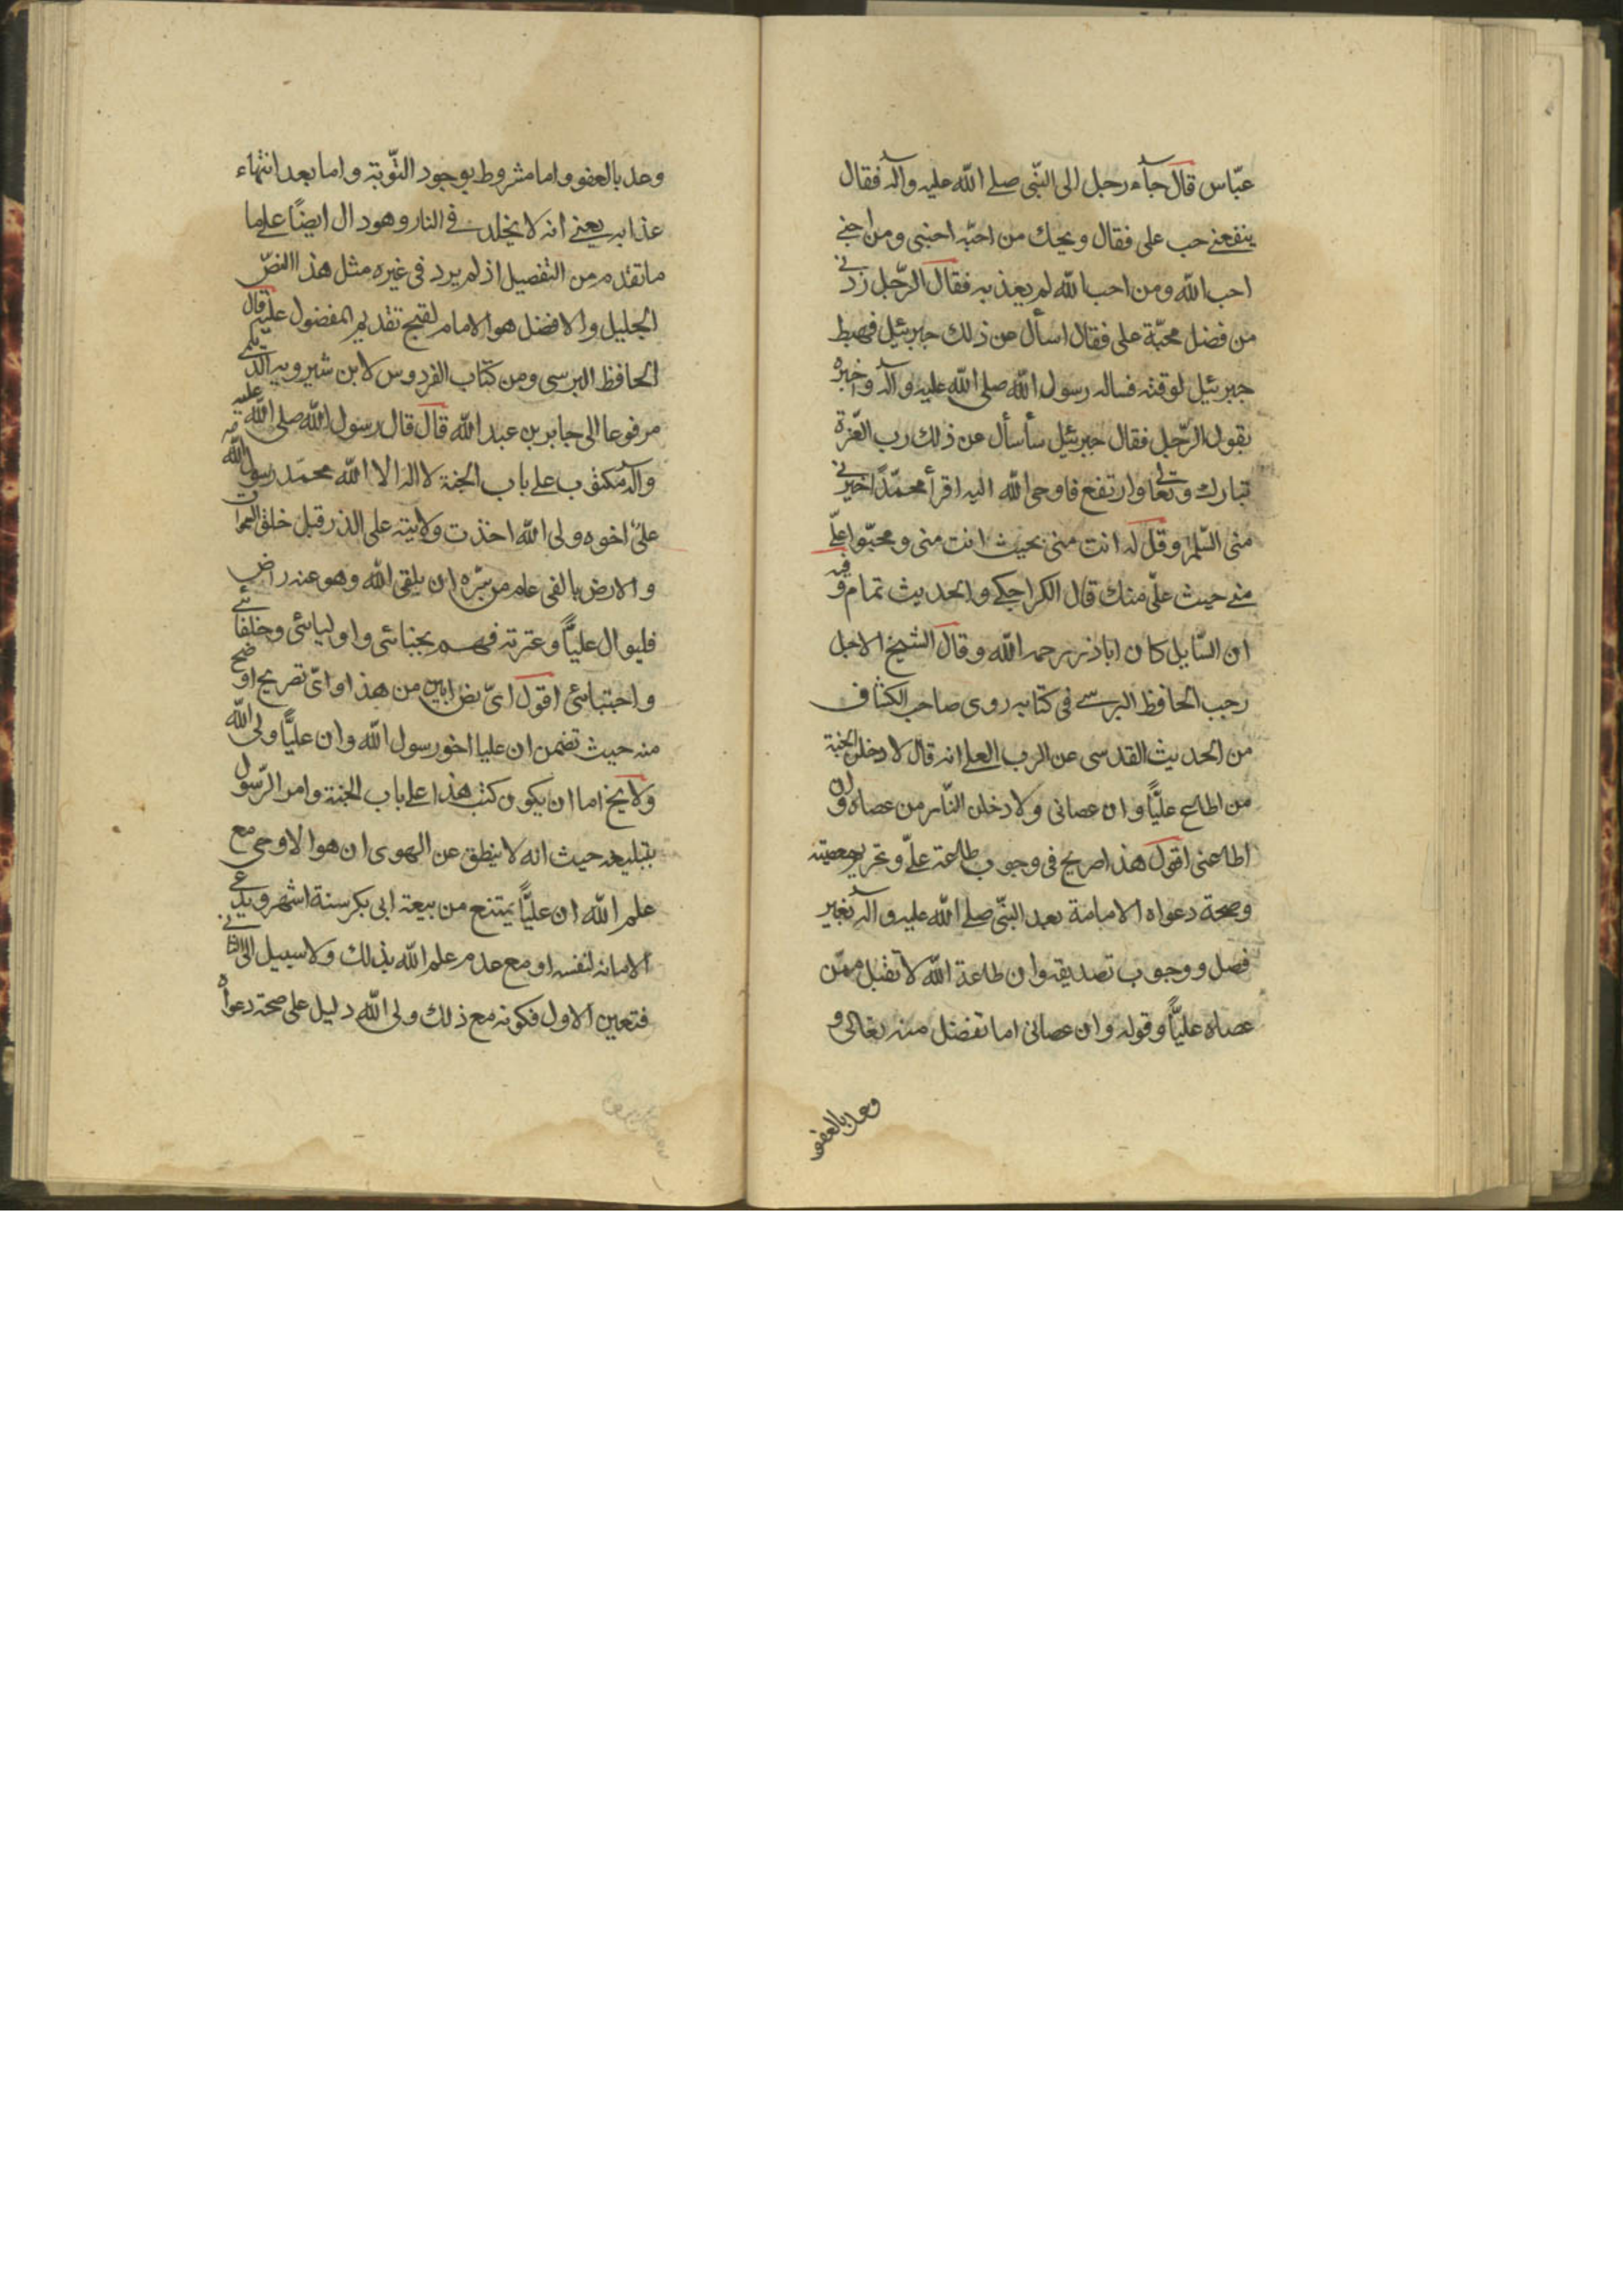 عبّاس قال جآء رجل الى النّبى صلى الله عليه وآله فقال
ينفعنى حب على فقال ويحك من احبّه احبنى ومن احبنى
احب الله ومن احب الله لم يعذبه فقال الرّجل زدنى
من فضل محبّة على فقال اسأل عن ذلك جبرئيل فهبط
جبرئيل لوقته فساله رسول الله صلى الله عليه وآله واخبره
بقول الرّجل فقال جبرئيل سأسأل عن ذلك رب العزّة
تبارك وتعالى وارتفع فاوحى الله اليه اقرأ محمّدًا خيرتى
منى السّلم وقل له انت منى بحيث انت منى ومحبّوا علىّ
منى حيث علىّ منك قال الكراجكى والحديث تمام وفيه
ان السّايل كان اباذر رحمه الله وقال الشيخ الاجل
رجب الحافظ البرسى فى كتابه روى صاحب الكشاف
من الحديث القدسى عن الرب العلى انه قال لادخلن الجنة
من اطاع عليًّا وان عصانى ولادخلن النّار من عصاه وان
اطاعنى اقول هذا صريح فى وجوب طاعة علىّ وتحريم معصيته
وصحة دعواه الامامة بعد النّبى صلى الله عليه وآله بغير
فصل ووجوب تصديقه وان طاعة الله لا تقبل ممّن
عصاه عليًّا وقوله وان عصانى اما تفضل منه تعالى و
وعد بالعفو
وعد بالعفو واما مشروط بوجود التّوبة واما بعد انتهاء
عذابه يعنى انه لا يخلد فى النار وهو دال ايضًا على ما
ما تقدم من التفصيل اذ لم يرد فى غيره مثل هذا النصّ
الجليل والافضل هو الامام لقبح تقديم المفضول عليه قال
الحافظ البرسى ومن كتاب الفردوس لابن شيرويه الديلمى
مرفوعا الى جابر بن عبد الله قال قال رسول الله صلى الله عليه
وآله مكتوب على باب الجنة لا اله الا الله محمّد رسول الله
علىّ اخوه ولى الله اخذت ولايته على الذر قبل خلق السموات
والارض بالفى عام من سرّه ان يلقى الله وهو عنه راض
فليوال عليًّا وعترته فهم نجبائى واوليائى وخلفائى
واحبّائى اقول اىّ نصّ ابين من هذا واىّ تصريح اوضح
منه حيث تضمن ان عليا اخو رسول الله وان عليًّا ولى الله
ولا يخ اما ان يكون كتب هذا على باب الجنة وامر الرّسول
بتبليغه حيث انه لا ينطق عن الهوى ان هو الا وحى مع
علم الله ان عليًّا يمتنع من بيعة ابى بكر ستة اشهر ويدعى
الامامة لنفسه او مع عدم علم الله بذلك ولا سبيل الى الثانى
فتعين الاول فكونه مع ذلك ولى الله دليل على صحة دعواه